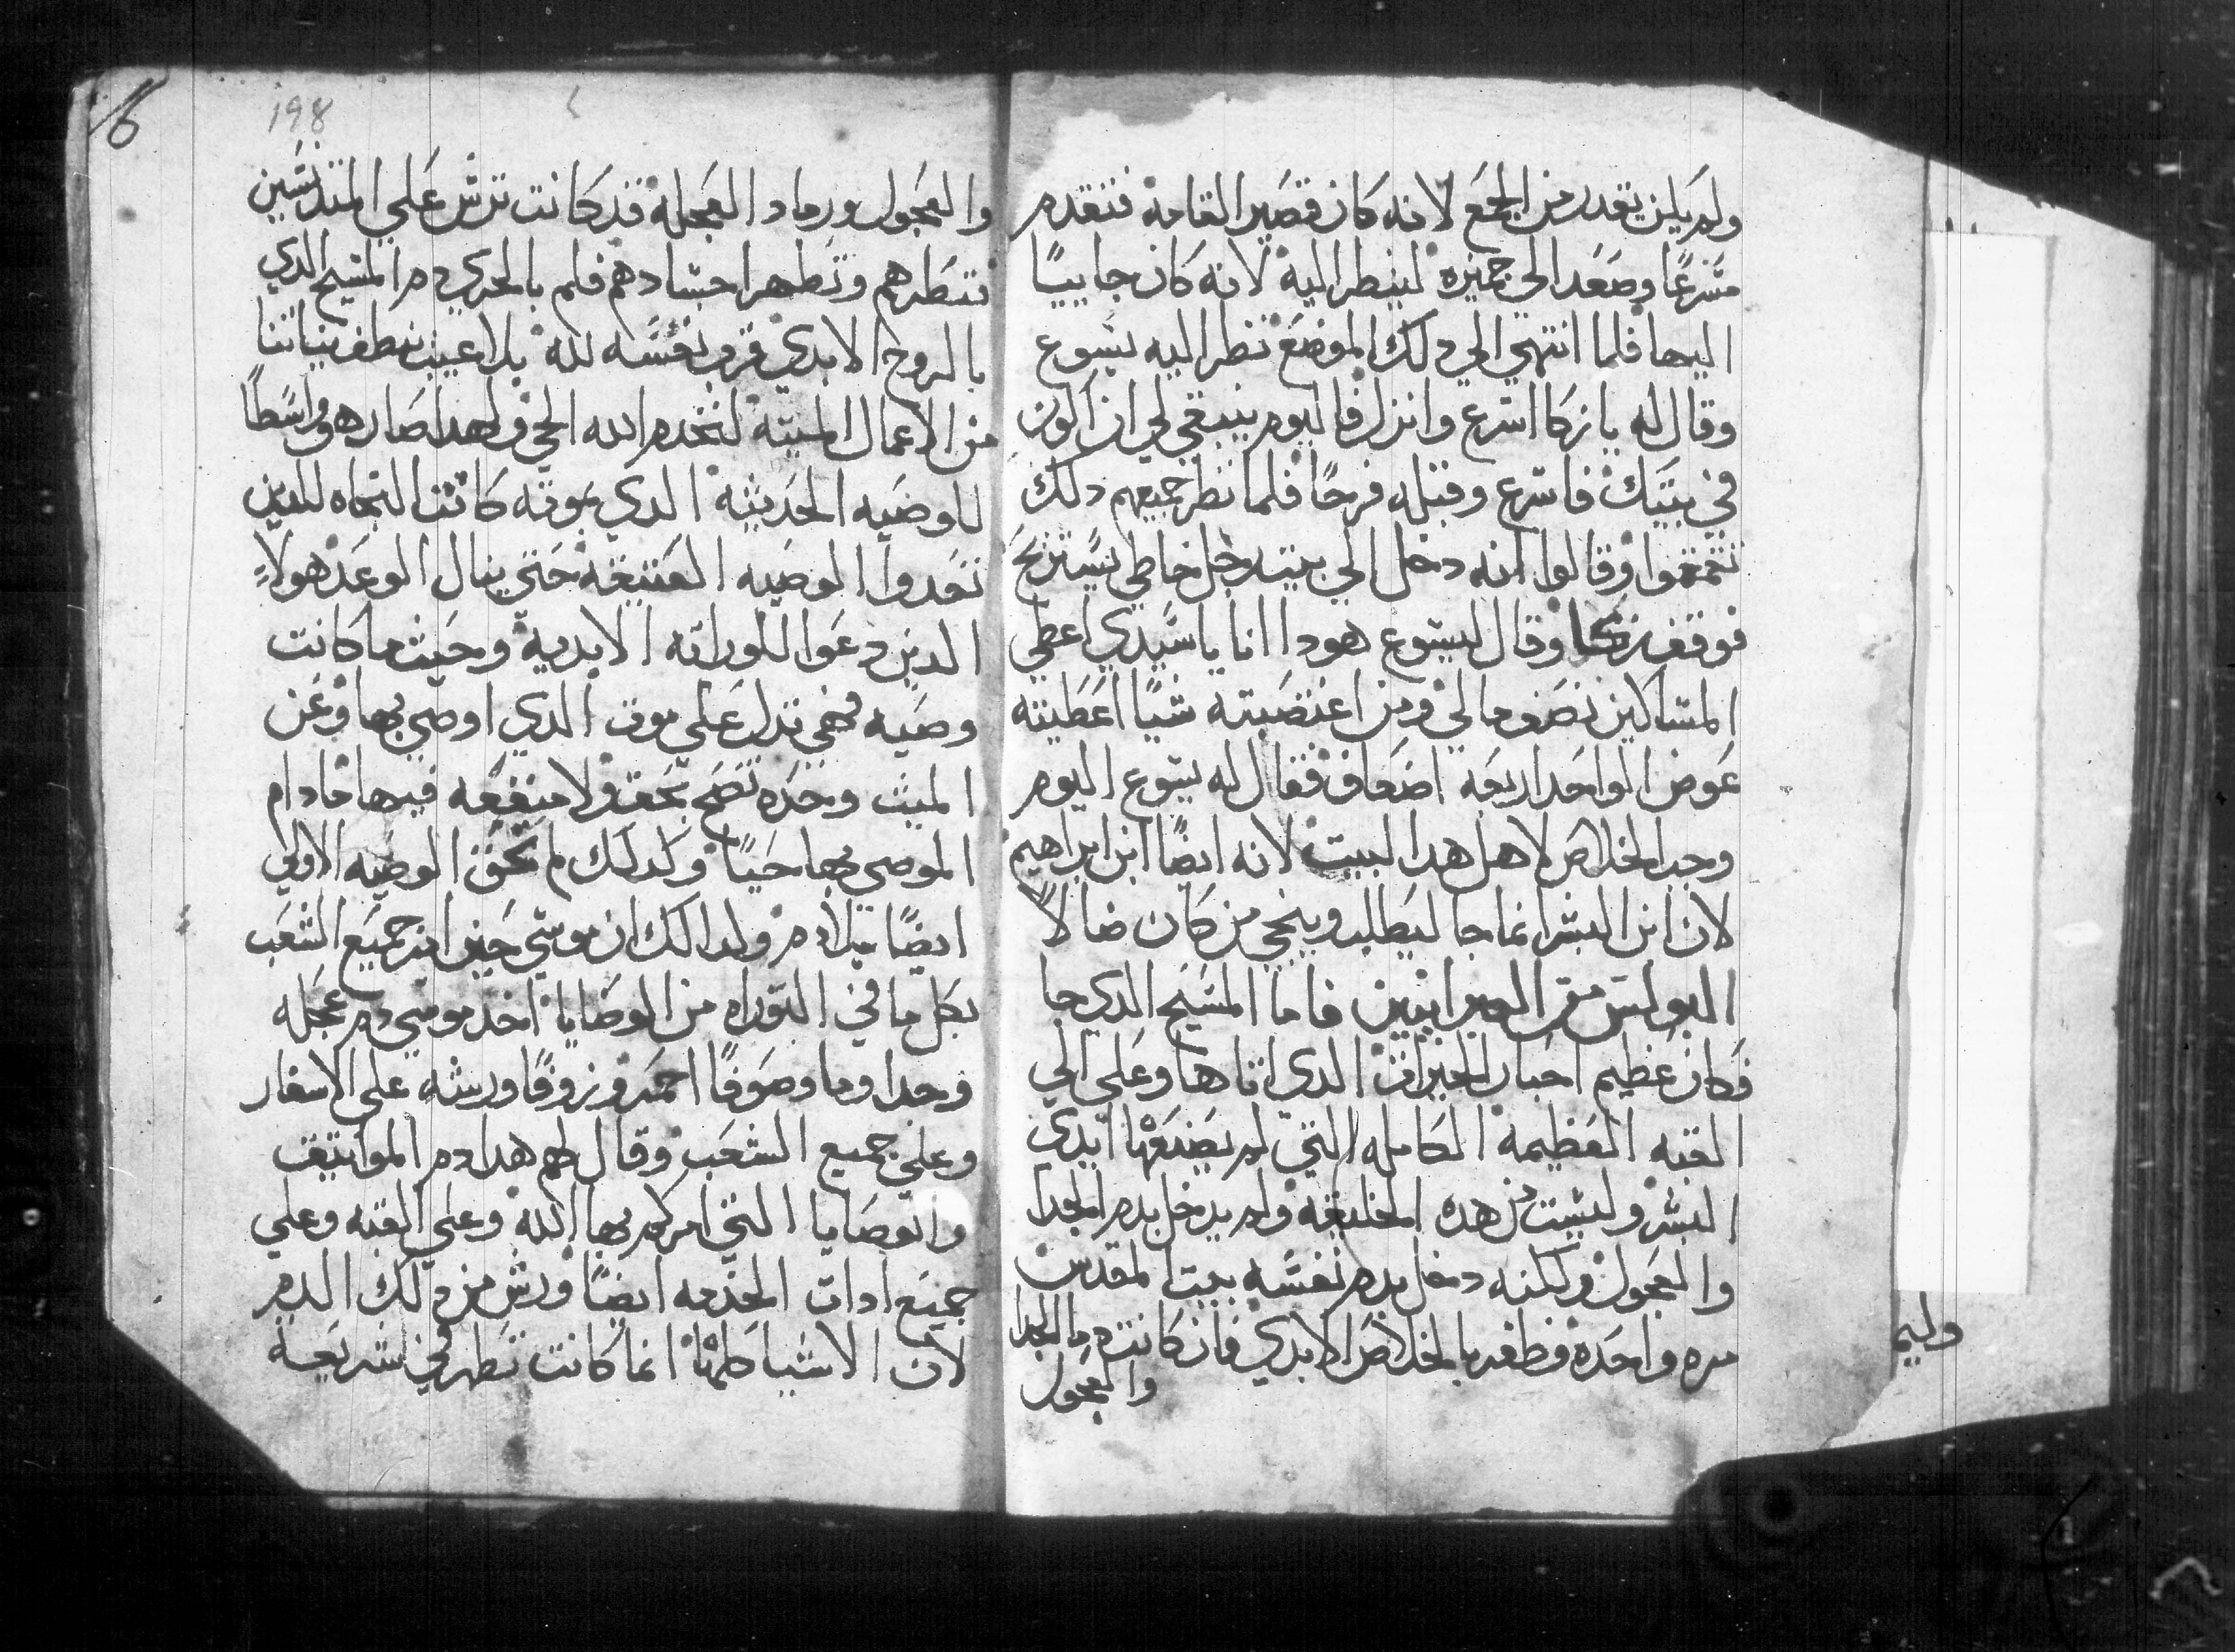 ولم يكن يقدر من الجمع لانه كان قصير القامه فتقدم
مسرعًا وصعد الي جميزه لينظر اليه لانه كان جاييًا
اليها فلما انتهي الي دلك الموضع نظر اليه يسوع
وقال له يا زكا اسرع وانزل فاليوم ينبغي لي ان اكون
في بيتك فاسرع وقبله فرحًا فلما نظر جميعهم دلك
تقمقموا وقالوا انه دخل الي بيت رجل خاطي يستريح
فوقف زكا وقال ليسوع هودا انا يا سيدي اعطي
المساكين نصف مالي ومن اغتصبته شيًا اعطيته
عوض الواحد اربعه اضعاف فقال له يسوع اليوم
وجب الخلاص لاهل هدا البيت لانه ايضًا ابن ابراهيم
لان ابن البشر انما جا ليطلب وينجي من كان ضالًا
البولس من العبرانيين فاما المسيح الدي جا
فكان عظيم احبار الخيرات الدي اتاها وعلي الي
القبه العظيمه الكامله التي لم يصنعها ايدي
البشر وليست من هده الخليقه ولم يدخل بدم الجدا
والعجول ولكنه دخل بدم نفسه بيت المقدس
مره واحده وظفر بالخلاص الابدي فان كانت دما الجدا
والعجول
وليم
198
والعجول ورماد العجله قد كانت ترش علي المتدنسين
فتطهرهم وتطهر اجسادهم فلم بالحري دم المسيح الدي
بالروح الابدي قرب نفسه لله بلا عيب ينطف نياتنا
من الاعمال الميته لنخدم الله الحي ولهدا صار هو واسطًا
للوصيه الحديثه الدي بموته كانت النجاه للدين
تعدوا الوصيه العتيقه حتي ينال الوعد هولاء
الدين دعوا للوراثه الابديه وحيث ما كانت
وصيه فهي تدل علي موت الدي اوصي بها وعن
الميت وحده تصح بحق ولا منفعه فيها ما دام
الموصي بها حيًا ولدلك لم تحق الوصيه الاولي
ايضًا بلا دم ولدالك ان موسي حين امر جميع الشعب
بكل ما في التوراه من الوصايا اخد موسي دم عجله
وجدا وما وصوفًا احمر وزوفًا ورشه علي الاسفار
وعلي جميع الشعب وقال لهم هدا دم المواتيق
والوصايا التي امركم بها الله وعلي القبه وعلي
جميع ادات الخدمه ايضًا ورش من دلك الدم
لان الاشيا كلها انما كانت تطهر في شريعة